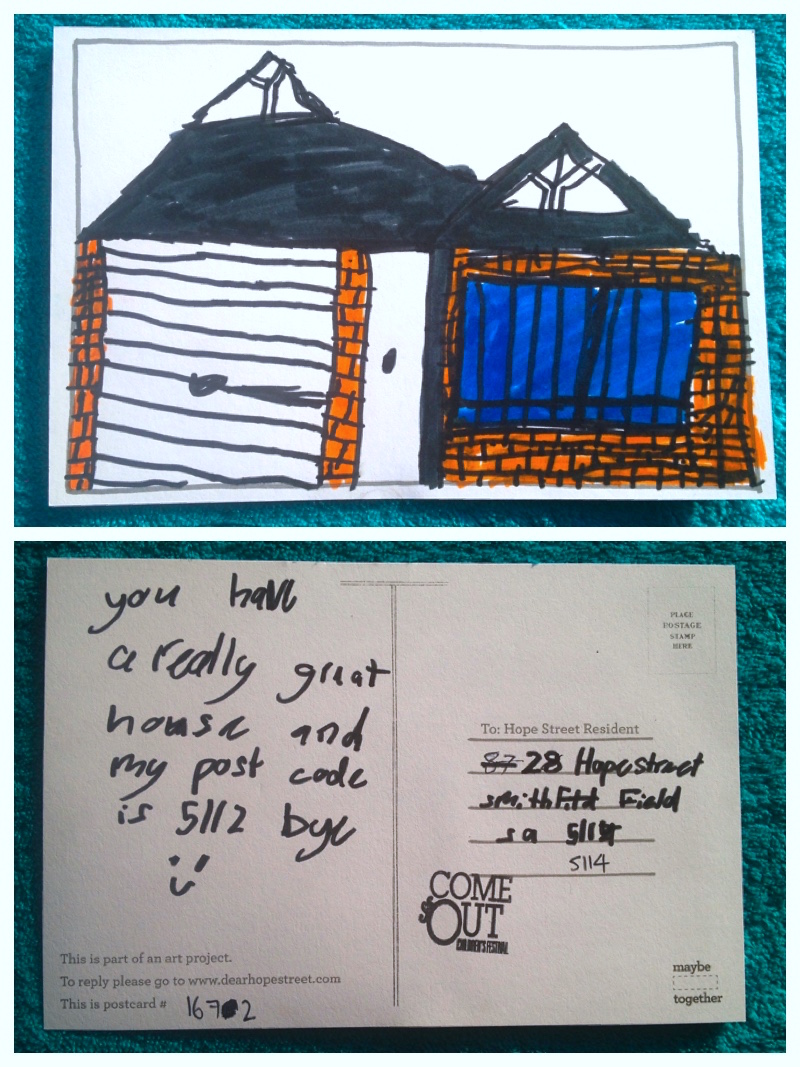 you have
a really great
house and
my post code
is 5112 bye
This is part of an art project.
To reply please go to www.dearhopestreet.com
This is postcard # 1672
PLACE
POSTAGE
STAMP
HERE
To: Hope Street Resident
87 28 Hope street
smith Field
sa
5114
COME
OUT
CHILDREN'S FESTIVAL
maybe
together